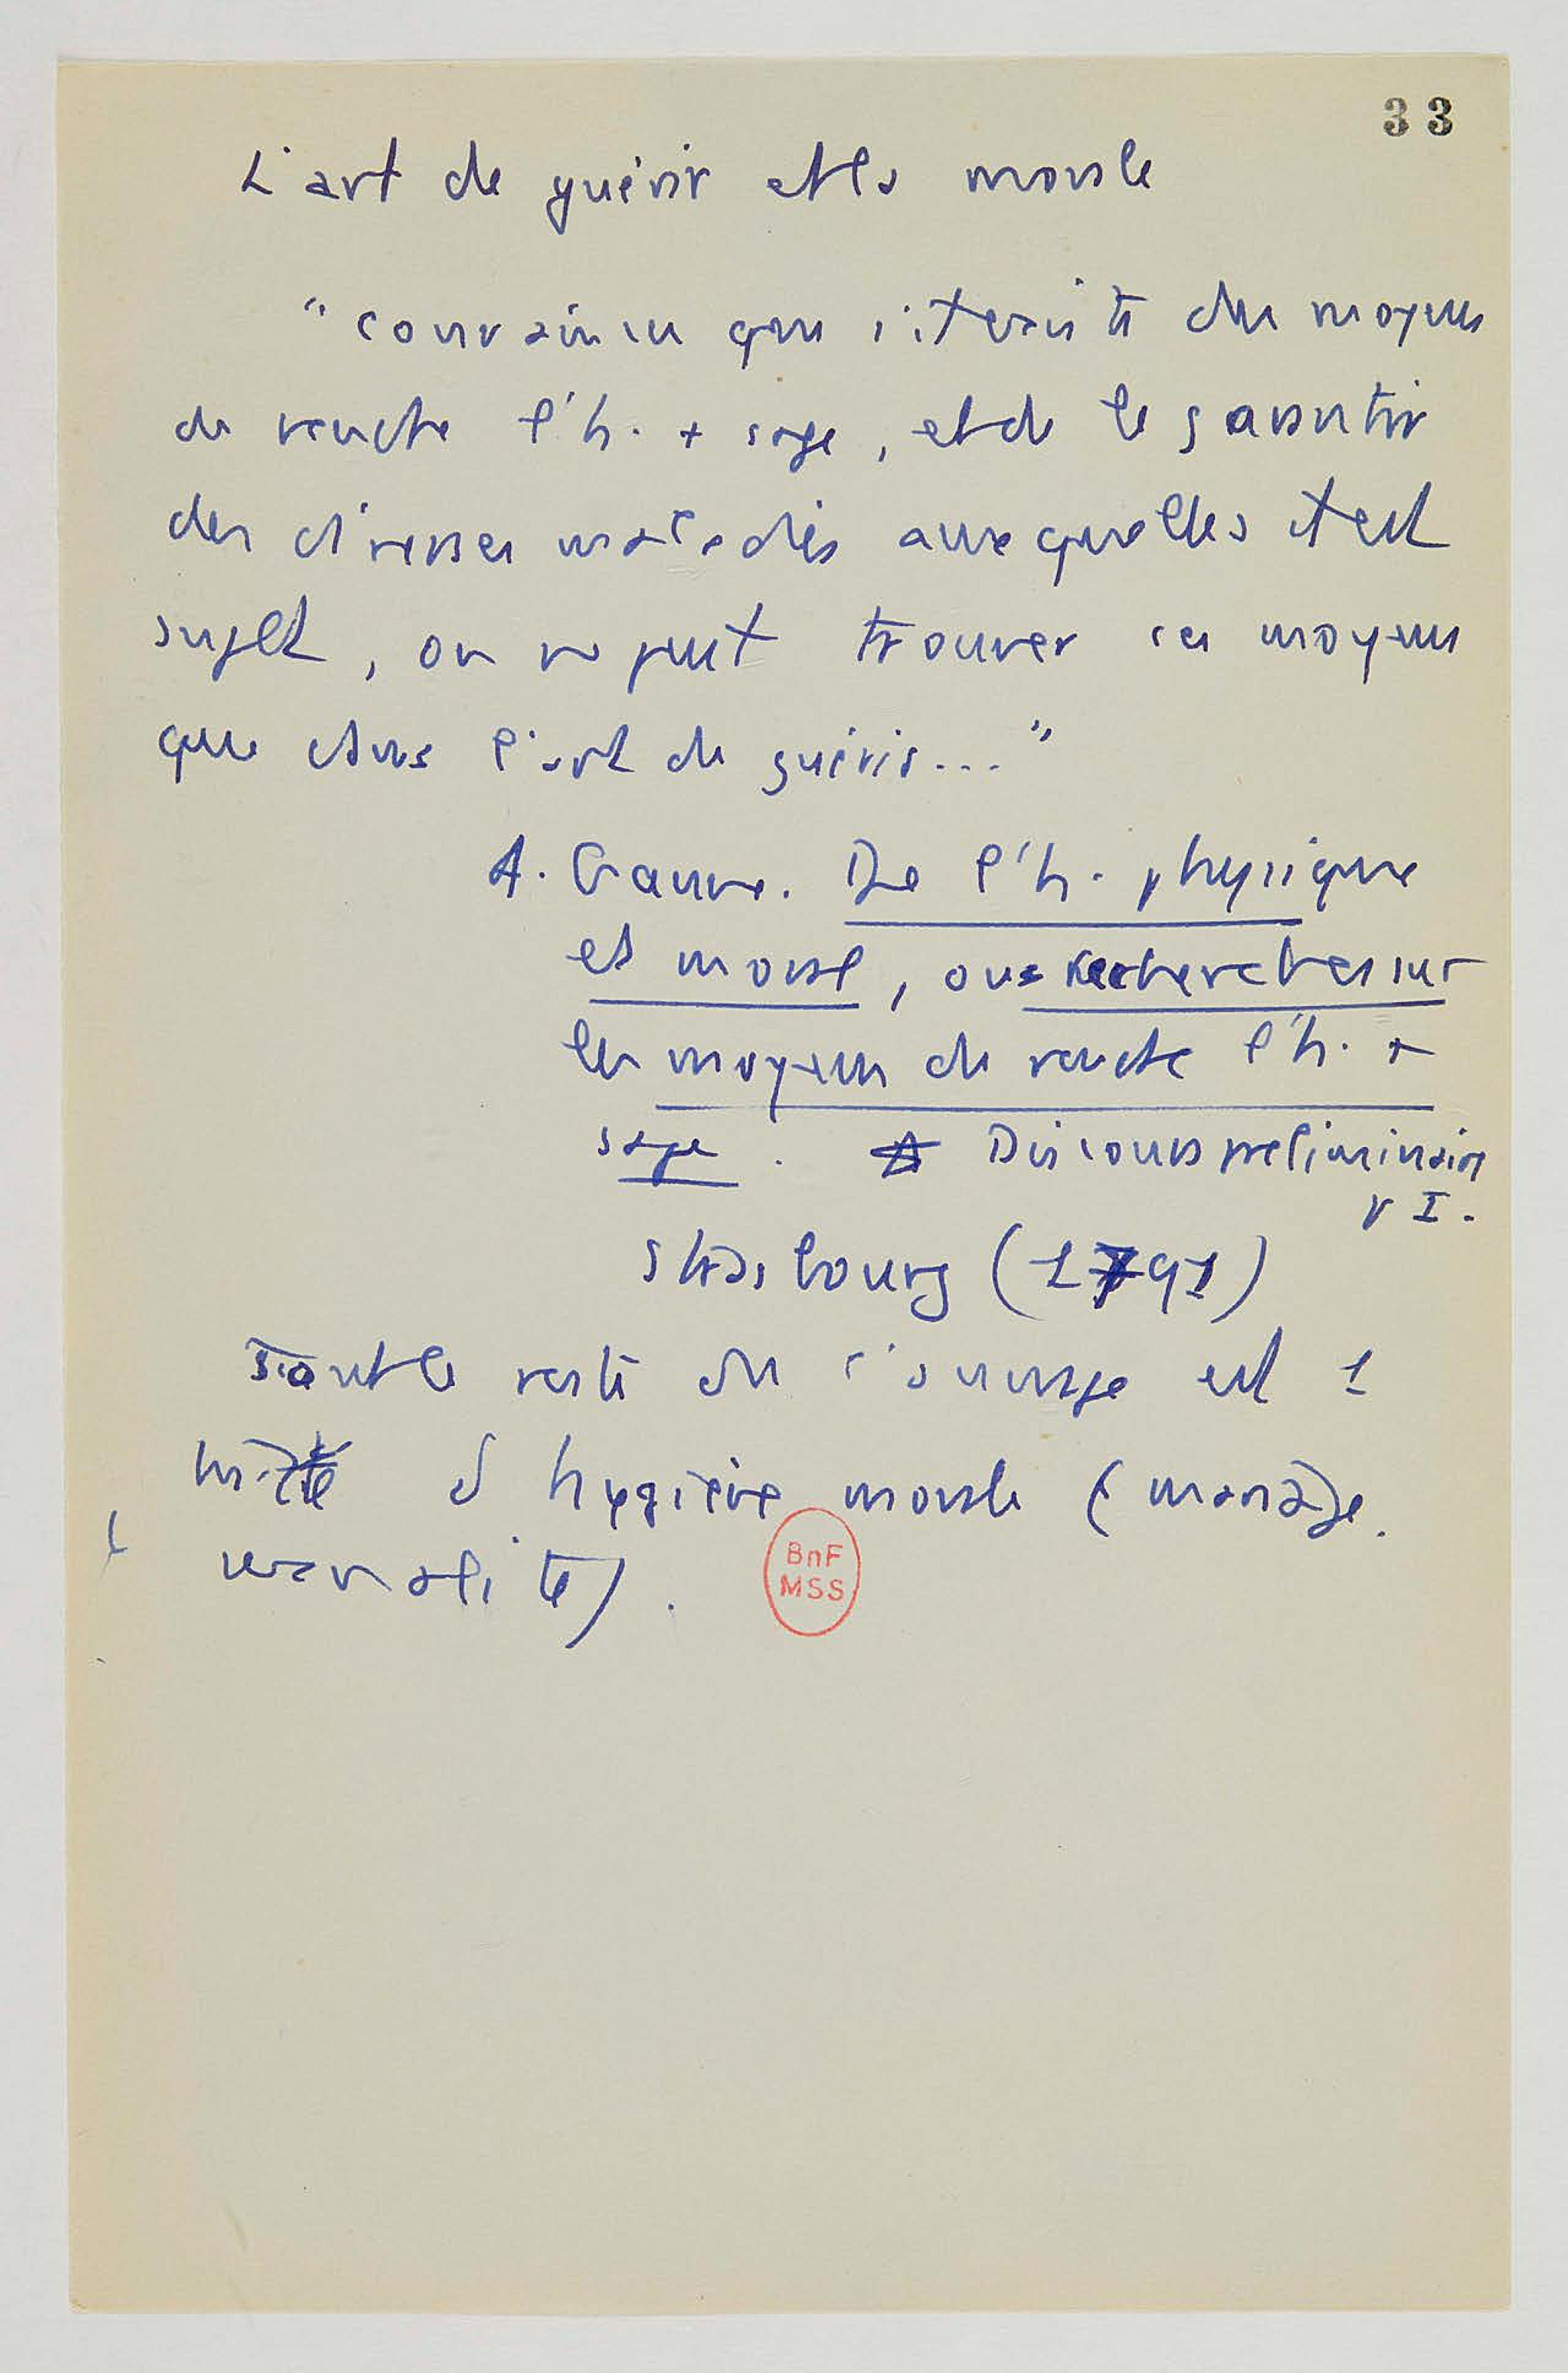 33
L'art de guérir et la morale
"convaincu que s'il existe des moyens
de rendre l'h. + sage, et de le garantir
des diverses maladies auxquelles il est
sujet, on ne peut trouver ces moyens
que dans l'art de guérir..."
A. Ganne. De l'h. physique
et moral, ou recherches sur
les moyens de rendre l'h. +
sage. Discours préliminaire
p I.
Strasbourg (1791)
Tout le reste de l'ouvrage est 1
traité d'hygiène morale (mariage.
BnF
MSS